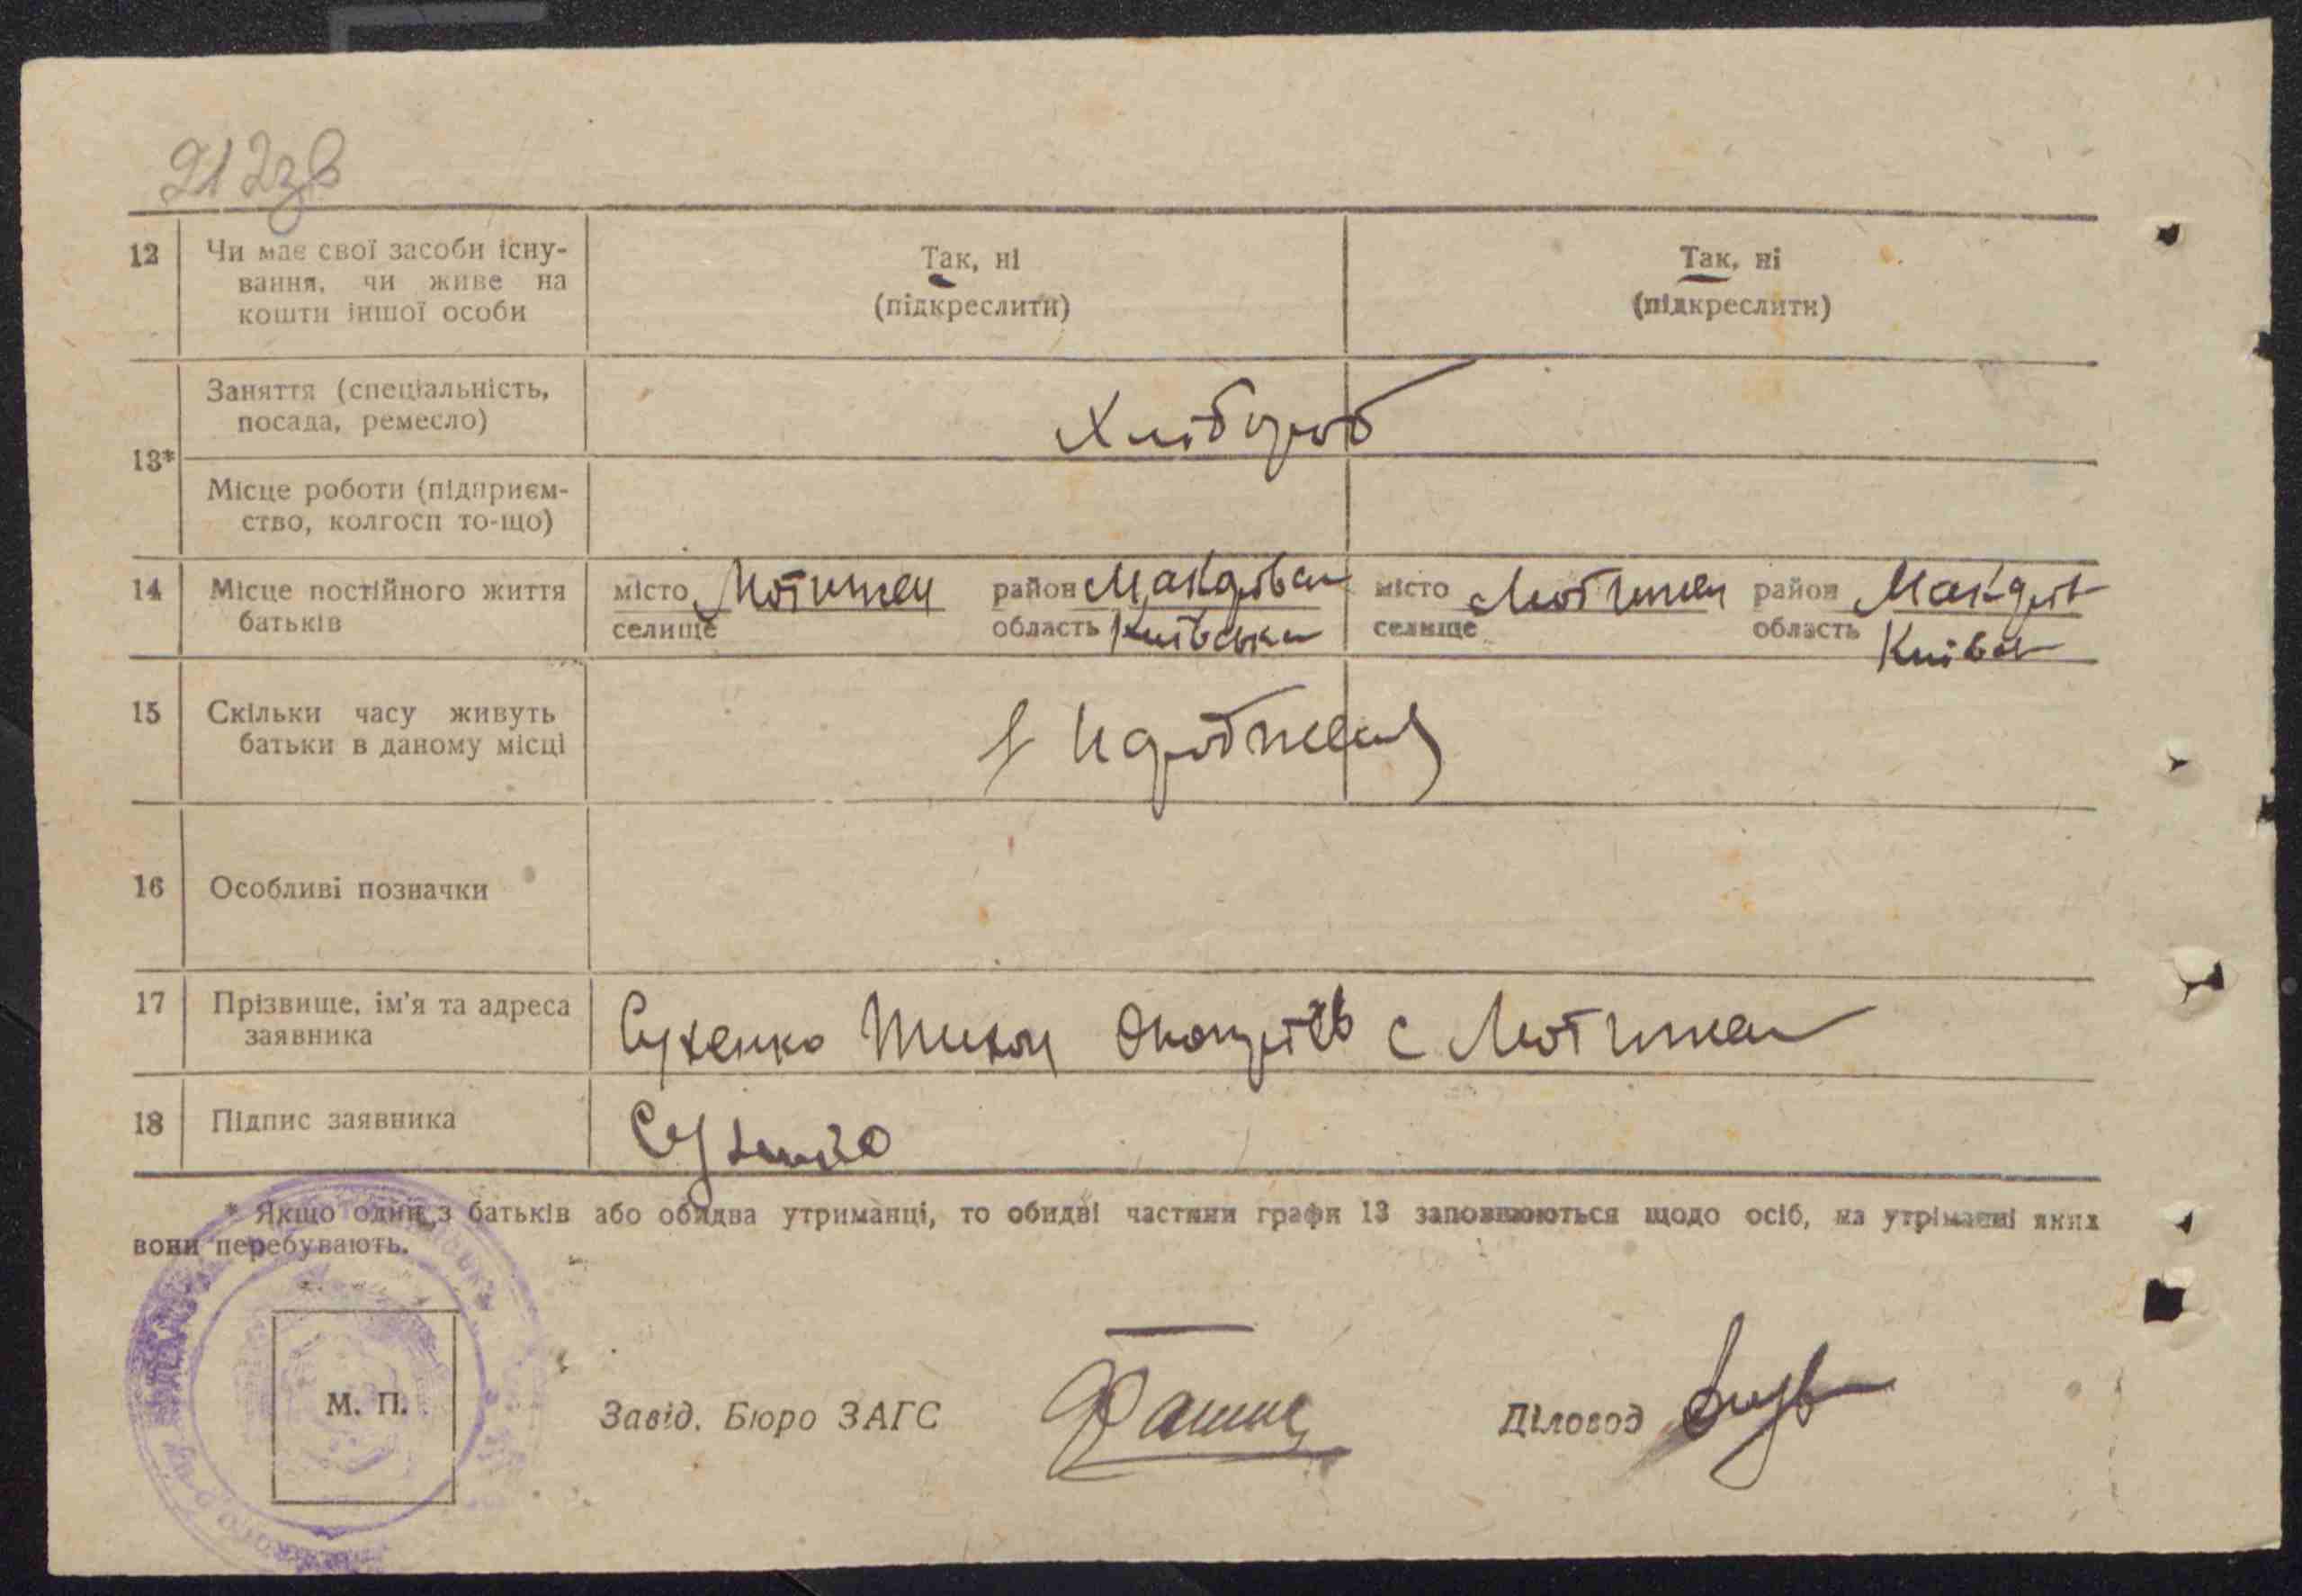 212зв
12 Чи має свої засоби існу- Так, ні Так, ні
вання, чи живе на (підкреслити) (підкреслити)
кошти іншої особи
Заняття (спеціальність, Хлібороб
посада, ремесло)
13*
Місце роботи (підприєм-
ство, колгосп то-що)
14 Місце постійного життя місто Мотижен район Макарівськ місто Мотижен район Макарів
батьків селище область Київська селище область Київськ
15 Скільки часу живуть
батьки в даному місці
16 Особливі позначки
17 Прізвище, ім'я та адреса Сухенко Тихон с Мотижен
заявника
18 Підпис заявника Сухенко
* Якщо один з батьків або обидва утриманці, то обидві частини графи 13 заповнюються щодо осіб, на утріманні яких
вони перебувають.
М. П. Завід. Бюро ЗАГС Діловод